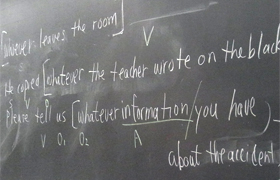 [whoever leaves the room]
V
He copied [whatever the teacher wrote on the black
S V O
Please tell us [whatever information/you have)
V O₁ O₂ A
about the accident.